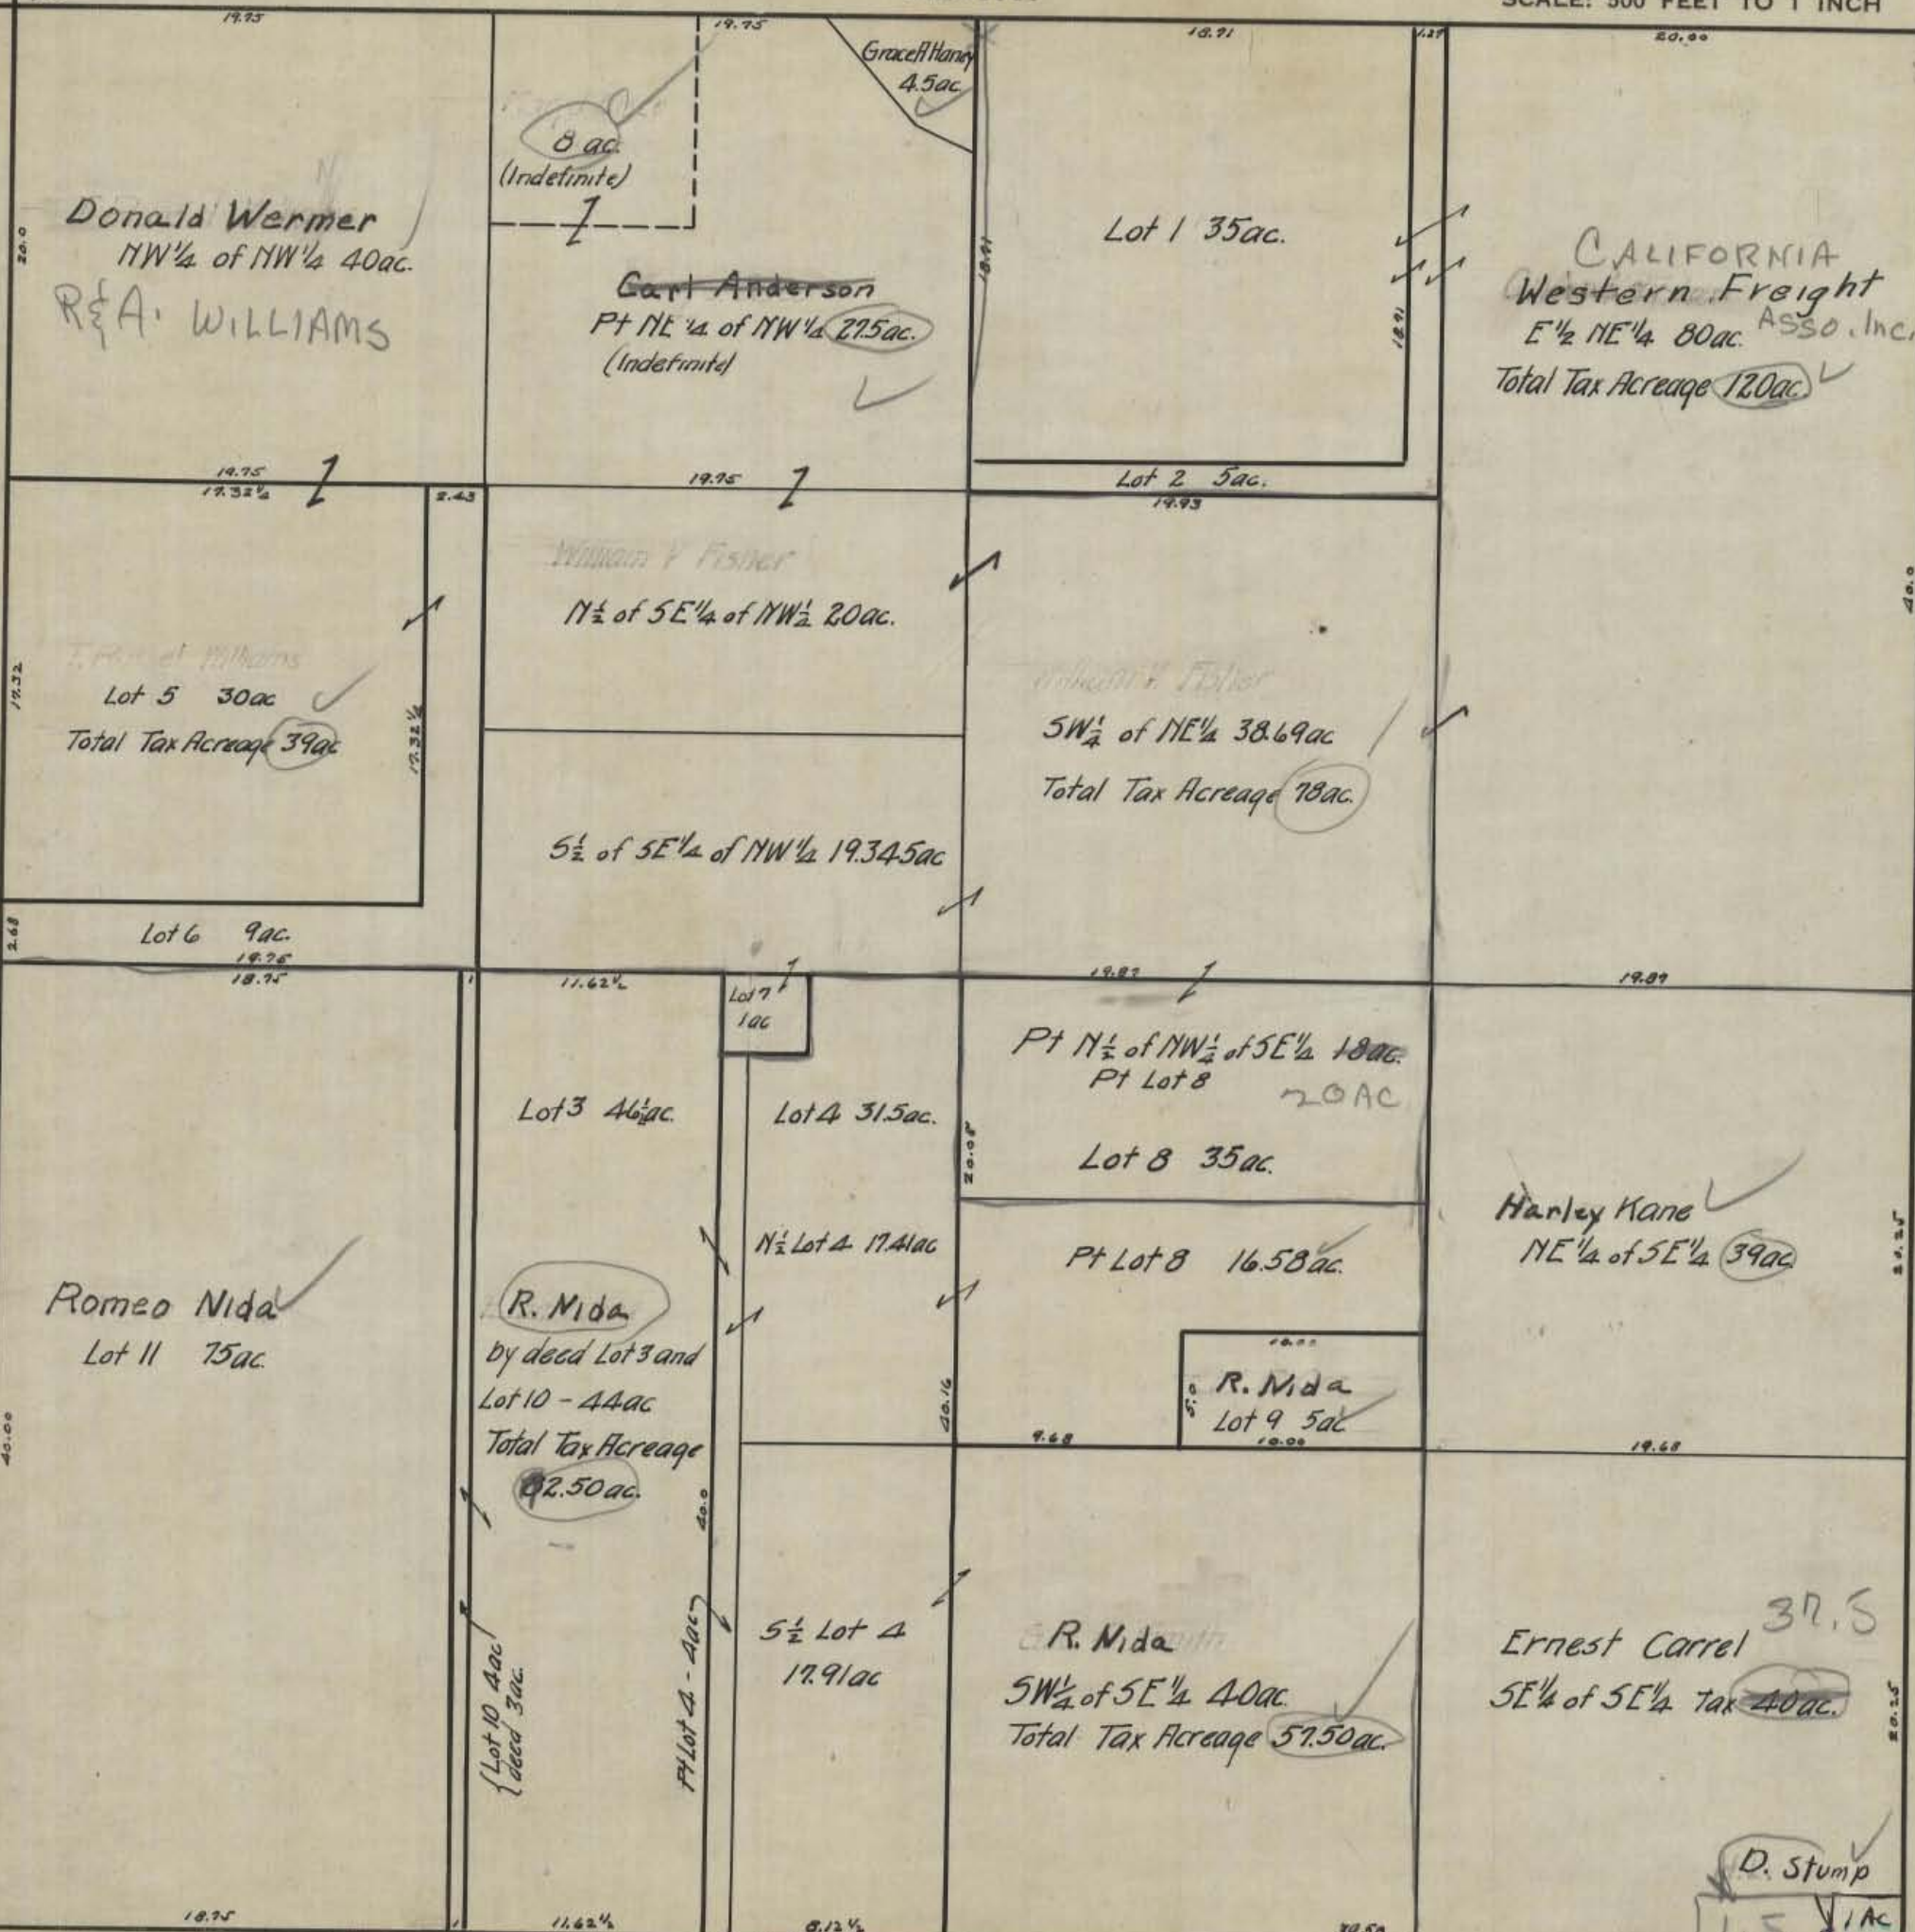 SCALE: 500 FEET TO 1 INCH
19.75
19.75
18.91
1.27
20.00
Grace A Haney
4.5ac
8 ac.
(Indefinite)
20.0
Donald Wermer
NW 1/4 of NW 1/4 40ac.
R & A. WILLIAMS
Carl Anderson
Pt NE 1/4 of NW 1/4 27.5ac.
(Indefinite)
18.91
Lot 1 35ac.
18.91
CALIFORNIA
Western Freight
ASSO. Inc.
E 1/2 NE 1/4 80ac.
Total Tax Acreage 120ac.
19.75
17.32 1/2
2.43
19.75
Lot 2 5ac.
19.93
William V Fisher
N 1/2 of SE 1/4 of NW 1/4 20ac.
40.0
17.32
Williams
Lot 5 30ac
Total Tax Acreage 39ac
17.32 1/2
William V. Fisher
SW 1/4 of NE 1/4 38.69ac
Total Tax Acreage 78ac.
S 1/2 of SE 1/4 of NW 1/4 19.345ac
2.68
Lot 6 9ac.
19.75
18.75
1
11.62 1/2
Lot 7
1ac
19.87
19.89
Lot 3 46 1/2 ac.
Lot 4 31.5ac.
Pt N 1/2 of NW 1/4 of SE 1/4 18ac.
Pt Lot 8
20 AC
20.08
Lot 8 35ac.
N 1/2 Lot 4 17.41ac
Pt Lot 8 16.58ac.
Harley Kane
NE 1/4 of SE 1/4 39ac
20.25
Romeo Nida
Lot 11 75ac.
R. Nida
by deed Lot 3 and
Lot 10 - 44ac
Total Tax Acreage
2.50ac.
40.00
40.16
10.00
5.0
R. Nida
Lot 9 5ac
9.68
10.00
19.68
40.0
{Lot 10 4ac
{deed 3ac.
Pt Lot 4 - 4ac
S 1/2 Lot 4
17.91ac
R. Nida
SW 1/4 of SE 1/4 40ac.
Total Tax Acreage 57.50ac.
37.5
Ernest Carrel
SE 1/4 of SE 1/4 Tax 40ac.
20.25
D. Stump
1 AC
18.75
1
11.62 1/2
8.12 1/2